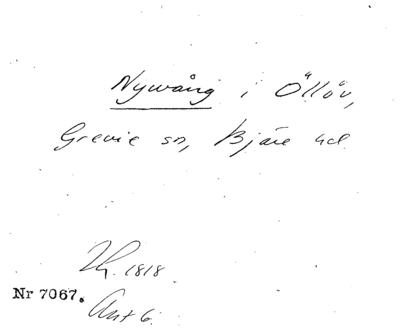 Nywång i Öllöv,
Grevie sn, Bjäre hd
Lh. 1818
Nr 7067.
Ant 6.